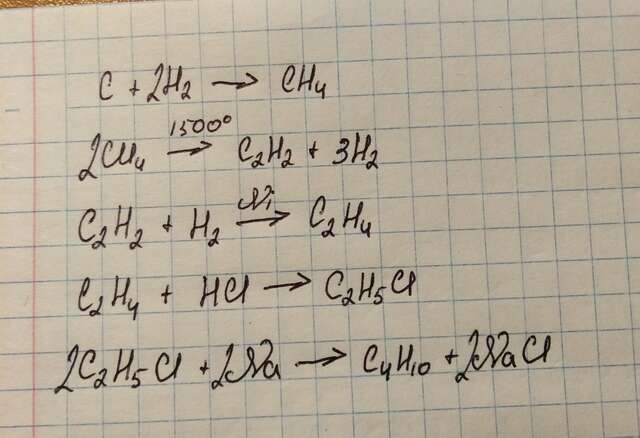 C + 2H₂ → CH₄
2CH₄ 1500° → C₂H₂ + 3H₂
C₂H₂ + H₂ Ni → C₂H₄
C₂H₄ + HCl → C₂H₅Cl
2C₂H₅Cl + 2Na → C₄H₁₀ + 2NaCl